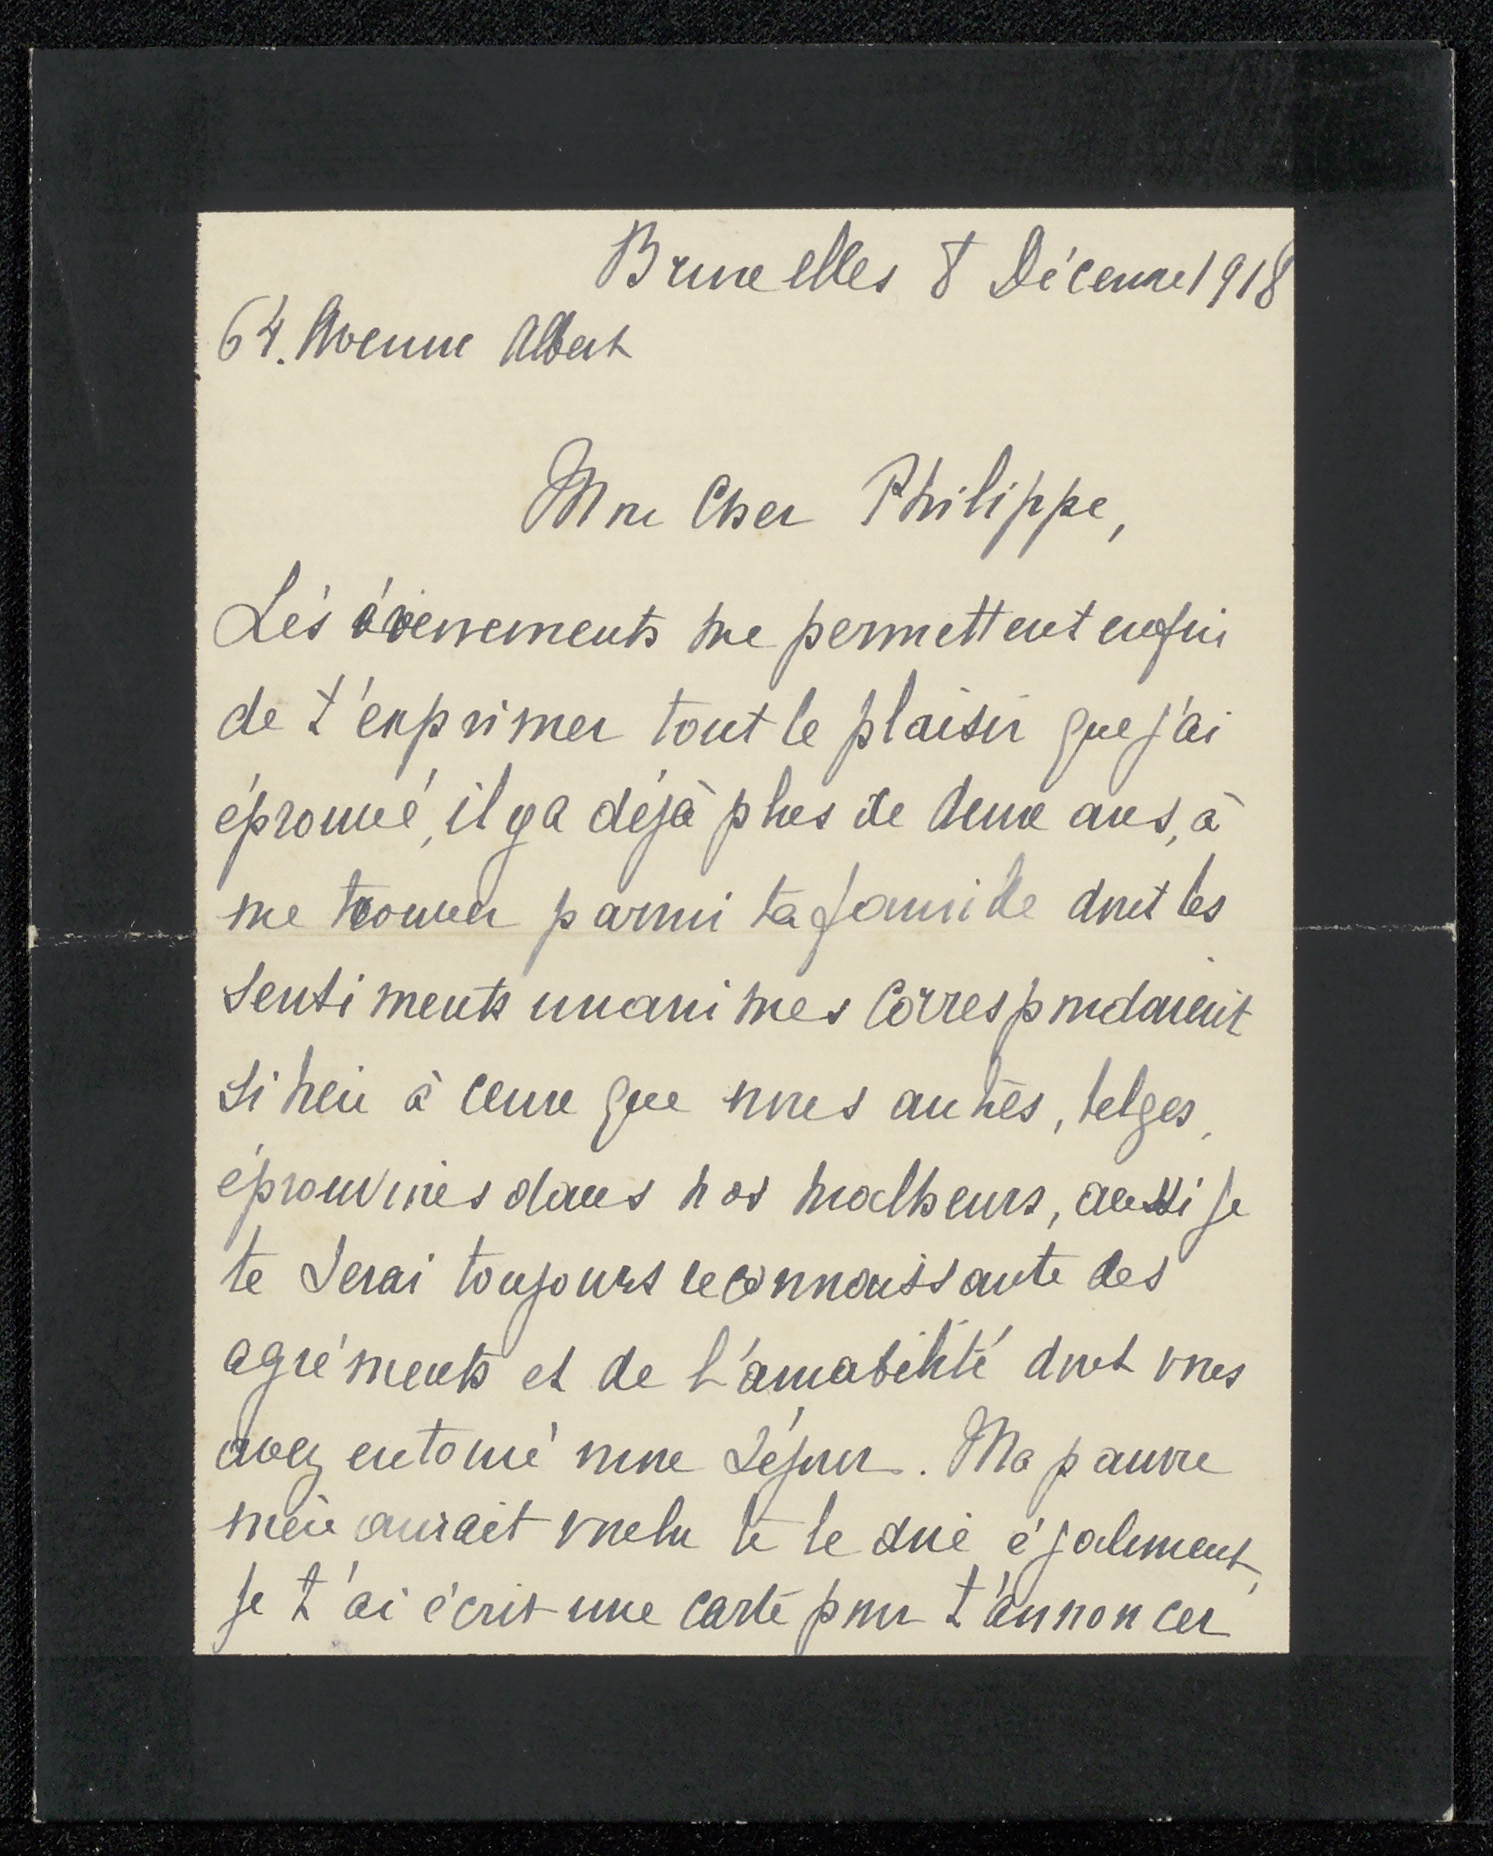 Bruxelles 8 Décembre 1918
64. Avenue Albert
Mon Cher Philippe,
Les évènements me permettent enfin
de t'exprimer tout le plaisir que j'ai
éprouvé, il y a déjà plus de deux ans, à
me trouver parmi ta famille dont les
sentiments unanimes correspondaient
si bien à ceux que nous autres, belges,
éprouvions dans nos malheurs, aussi je
te serai toujours reconnaissante des
agréments et de l'amabilité dont vous
avez entouré mon séjour. Ma pauvre
mère aurait voulu te le dire également,
je t'ai écrit une carte pour t'annoncer